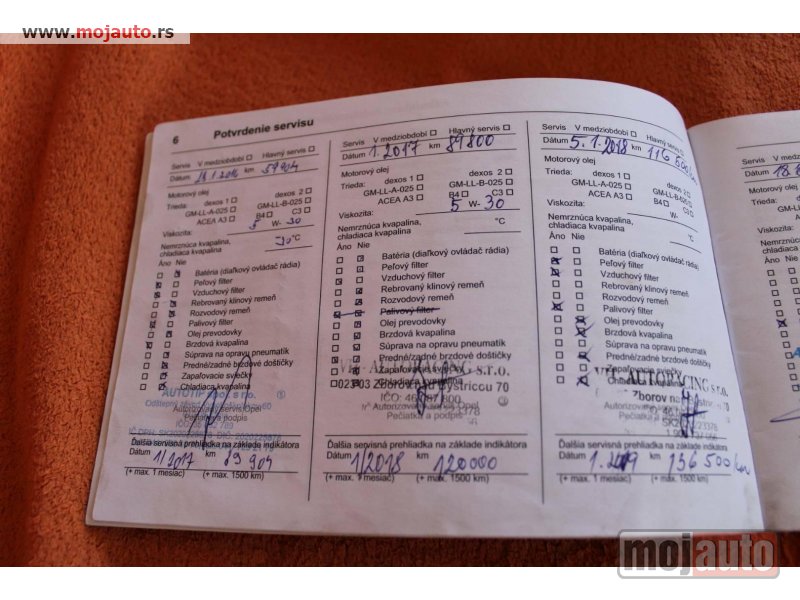 www.mojauto.rs
6 Potvrdenie servisu
Servis V medziobdobí Hlavný servis
Dátum 14.1.2016 km 59904
Motorový olej
Trieda: dexos 1 dexos 2
GM-LL-A-025 GM-LL-B-025
ACEA A3 B4 C3
Viskozita: 5 W- 30
Nemrznúca kvapalina,
chladiaca kvapalina -30 °C
Áno Nie
Batéria (diaľkový ovládač rádia)
Peľový filter
Vzduchový filter
Rebrovaný klinový remeň
Rozvodový remeň
Palivový filter
Olej prevodovky
Brzdová kvapalina
Súprava na opravu pneumatík
Predné/zadné brzdové doštičky
Zapaľovacie sviečky
Chladiaca kvapalina
AUTOTIP spol. s r.o.
Autorizovaný servis Opel
Pečiatka a podpis
Ďalšia servisná prehliadka na základe indikátora
Dátum 1/2017 km 89 904
(+ max. 1 mesiac) (+ max. 1500 km)
Servis V medziobdobí Hlavný servis
Dátum 1.2017 km 87800
Motorový olej
Trieda: dexos 1 dexos 2
GM-LL-A-025 GM-LL-B-025
ACEA A3 B4 C3
Viskozita: 5 W- 30
Nemrznúca kvapalina,
chladiaca kvapalina °C
Áno Nie
Batéria (diaľkový ovládač rádia)
Peľový filter
Vzduchový filter
Rebrovaný klinový remeň
Rozvodový remeň
Palivový filter
Olej prevodovky
Brzdová kvapalina
Súprava na opravu pneumatík
Predné/zadné brzdové doštičky
Zapaľovacie sviečky
Chladiaca kvapalina
S.R.O.
023 03 Zborov nad Bystricou 70
Autorizovaný servis Opel
Pečiatka a podpis
Ďalšia servisná prehliadka na základe indikátora
Dátum 1/2018 km 120000
(+ max. 1 mesiac) (+ max. 1500 km)
Servis V medziobdobí Hlavný servis
Dátum 5.1.2018 km 116 500 km
Motorový olej
Trieda: dexos 1 dexos 2
GM-LL-A-025 GM-LL-B-025
ACEA A3 B4 C3
Viskozita: W-
Nemrznúca kvapalina,
chladiaca kvapalina °C
Áno Nie
Batéria (diaľkový ovládač rádia)
Peľový filter
Vzduchový filter
Rebrovaný klinový remeň
Rozvodový remeň
Palivový filter
Olej prevodovky
Brzdová kvapalina
Súprava na opravu pneumatík
Predné/zadné brzdové doštičky
Zapaľovacie sviečky
Chladiaca kvapalina
Zborov
Autorizovaný servis Opel
Pečiatka a podpis
Ďalšia servisná prehliadka na základe indikátora
Dátum 1.2019 km 136 500 km
(+ max. 1 mesiac) (+ max. 1500 km)
Servis
Dátum
Motorový
Trieda:
Viskozita:
Nemrznúca
chladiaca
Áno Nie
Ďalšia
Dátum
(+ max.
mojauto